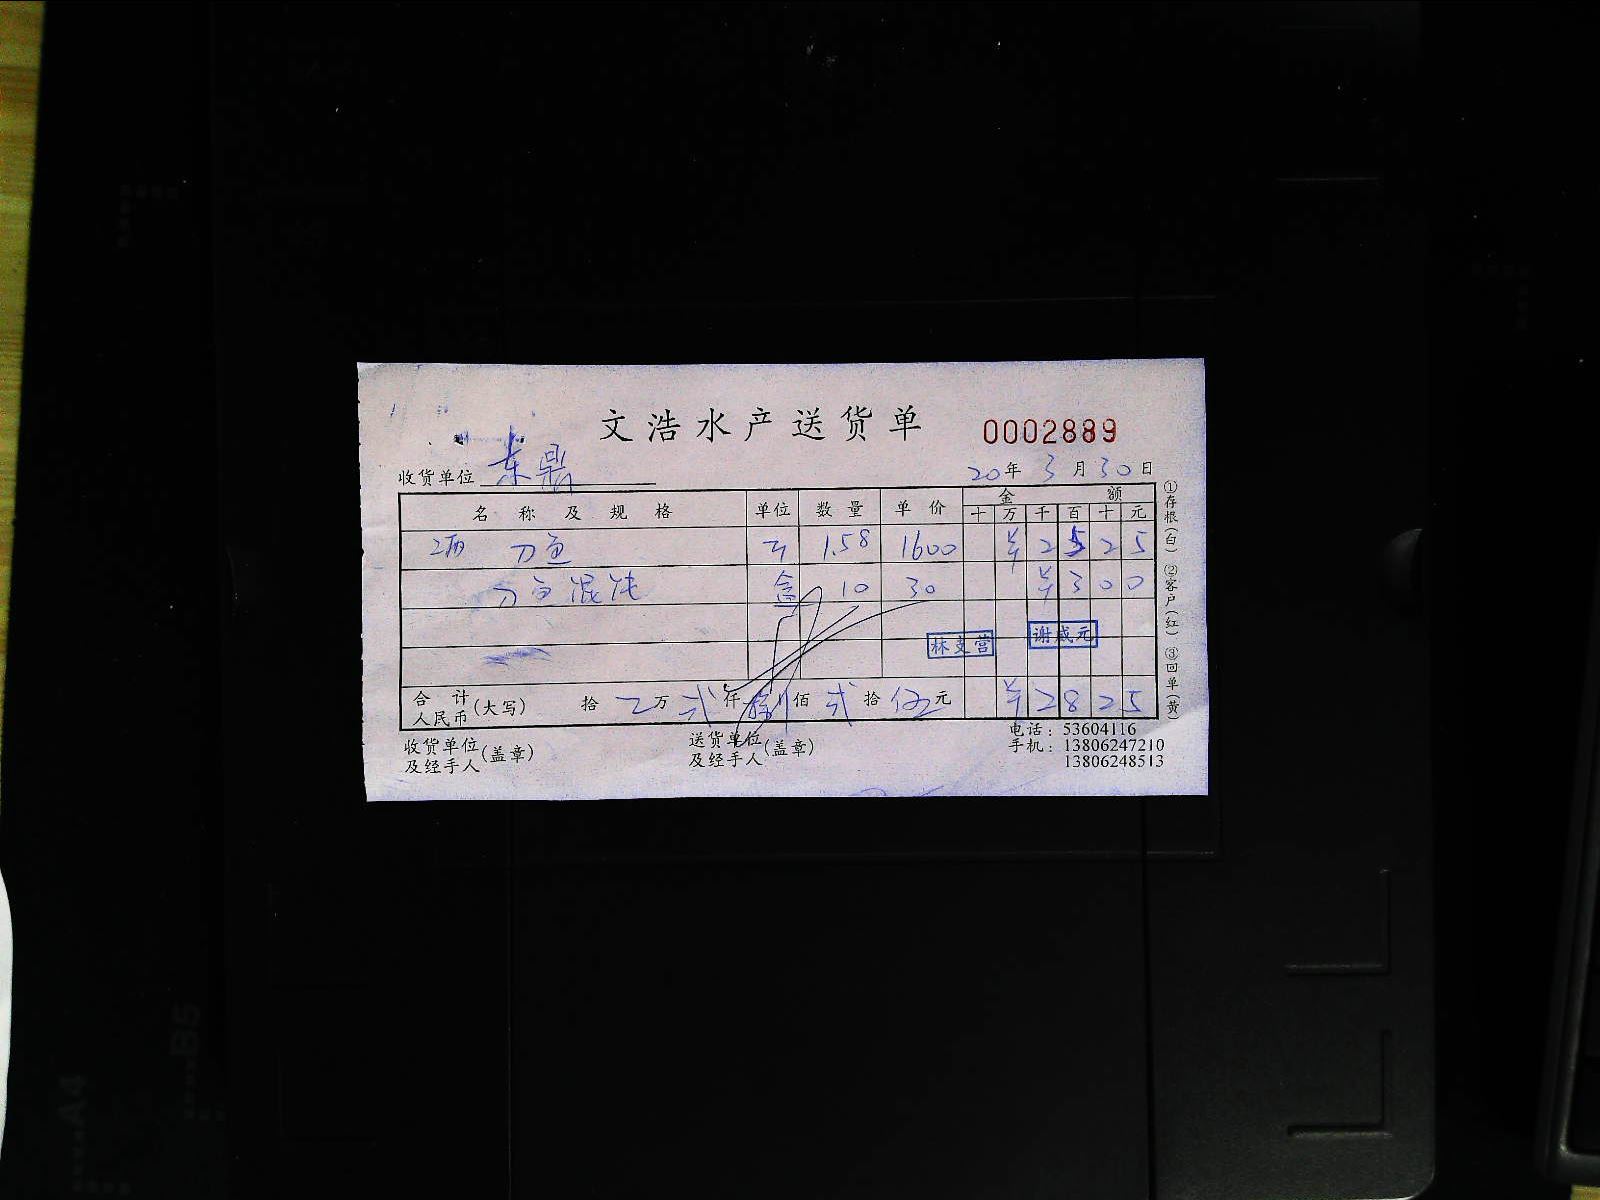 文浩水产送货单 0002889
收货单位 东鼎 20年 3月 30日
名称及规格 单位 数量 单价 金额
十 万 千 百 十 元
2两 刀鱼 斤 1.58 1600 ¥ 2 5 2 5
刀鱼混沌 盒 10 30 ¥ 3 0 0
林支营 谢咸元
合计人民币(大写) 拾 万 贰仟 捌佰 贰拾 伍元 ¥ 2 8 2 5
收货单位及经手人(盖章) 送货单位及经手人(盖章) 电话：53604116
手机：13806247210
13806248513
①存根(白) ②客户(红) ③回单(黄)
A4
B5